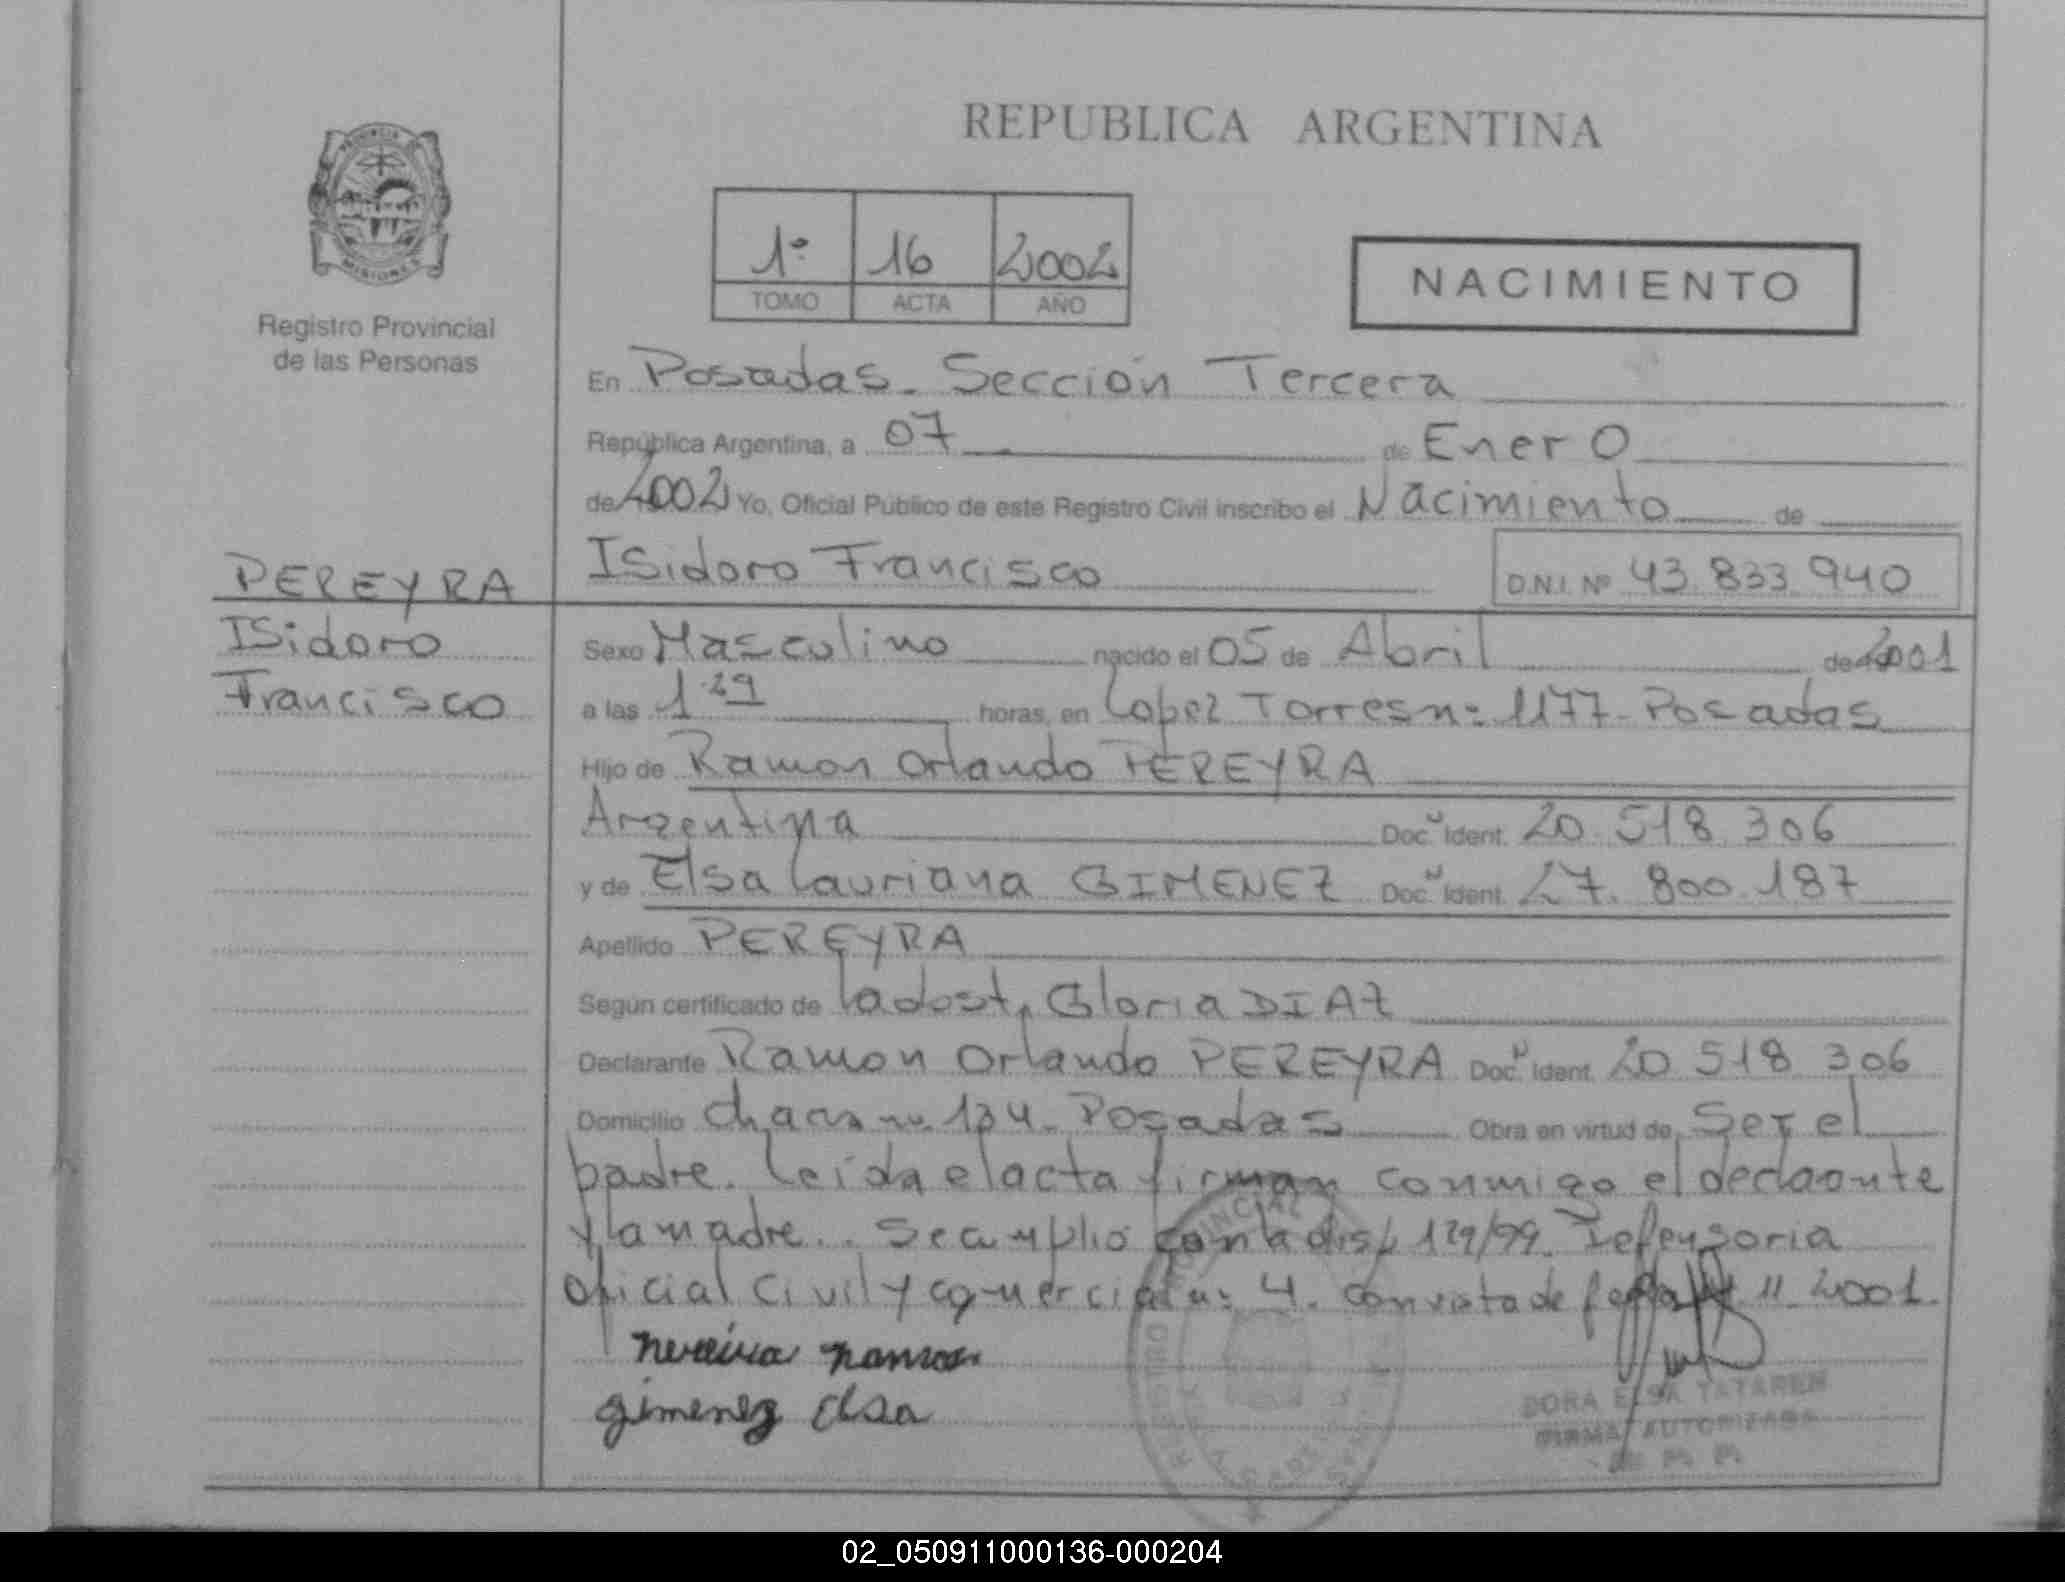 REPUBLICA ARGENTINA
PROVINCIA DE
MISIONES
Registro Provincial
de las Personas
1º 16 2002
TOMO ACTA AÑO
NACIMIENTO
En Posadas. Sección Tercera
República Argentina, a 07 de Enero
de 2002 Yo, Oficial Público de este Registro Civil inscribo el Nacimiento de
PEREYRA
Isidoro
Francisco
Isidoro Francisco D.N.I. Nº 43.833.940
Sexo Masculino nacido el 05 de Abril de 2001
a las 1.29 horas, en Lopez Torres nº 1177 - Posadas
Hijo de Ramon Orlando PEREYRA
Argentina Doc. Ident. 20.518.306
y de Elsa Lauriana GIMENEZ Doc. Ident. 27.800.187
Apellido PEREYRA
Según certificado de la obst. Gloria DIAZ
Declarante Ramon Orlando PEREYRA Doc. Ident. 20 518 306
Domicilio chacra nº 134 - Posadas Obra en virtud de Ser el
padre. Leída el acta firman conmigo el declaante
y la madre. Se cumplió con la disp 129/99. Defensoria
oficial Civil y comercial nº 4. con vista de 11 2001.
pereira ramon
gimenez elsa
REGISTRO PROVINCIAL
DORA ELSA TATAREN
FIRMA AUTORIZADA
02_050911000136-000204